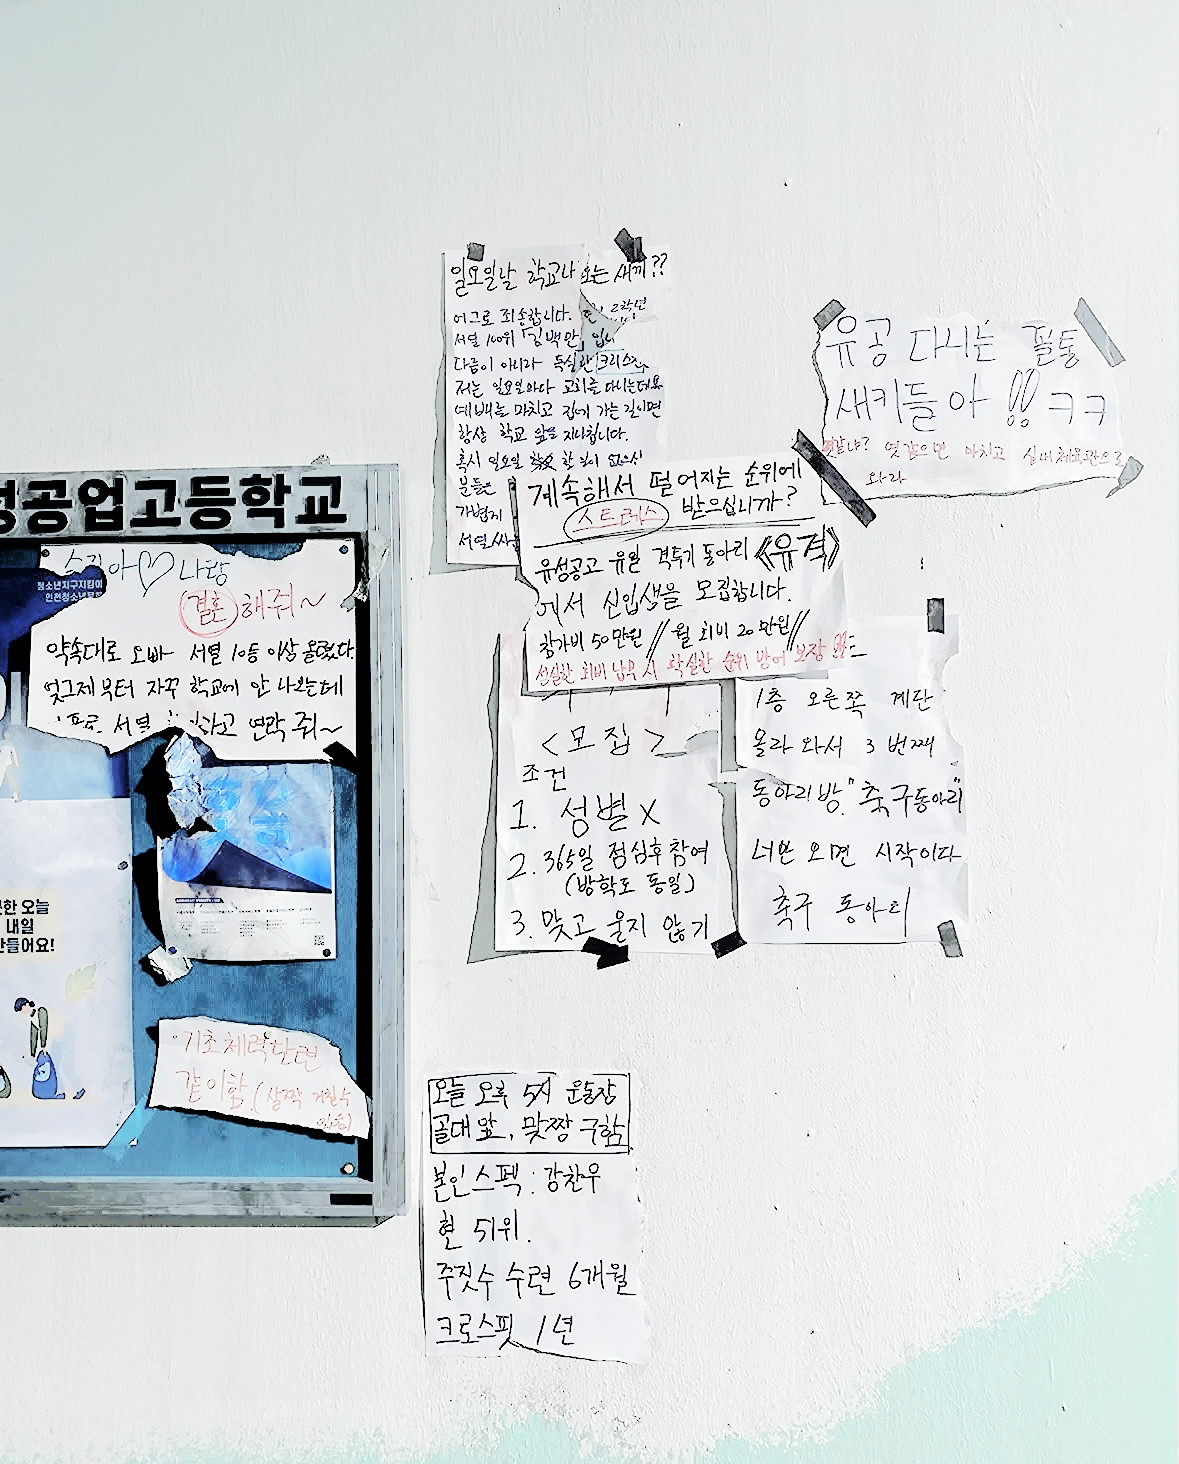 성공업고등학교
청소년지구지킴이
나랑
결혼해줘~
약속대로 오빠 서열 10등 이상 올렸다.
엊그제부터 자꾸 학교에 안 나오는데
서열
연락 줘~
못한 오늘
내일
만들어요!
기초체력단련
같이함 (살짝 거칠 수
있음)
일요일날 학교나 오는 새끼??
어그로 죄송합니다. 2학년
서열 100위 「김백안」 입니
다름이 아니라 독실한 크리스찬
저는 일요일마다 교회를 다니는데요
예배를 마치고 집에 가는 길이면
항상 학교 앞을 지나칩니다.
혹시 일요일 학교 할 일이 없으신
분들은
가볍게
서열싸움
계속해서 떨어지는 순위에
스트레스 받으십니까?
유성공고 유일 격투기 동아리 《유격》
에서 신입생을 모집합니다.
참가비 50만원 // 월 회비 20만원 //
성실한 회비 납부 시 확실한 순위 방어 보장
유공 다니는 필통
새키들아 !! ㅋㅋ
엿같냐? 엿같으면 마치고 실내체육관으로
와라
<모집>
조건
1. 성별 X
2. 365일 점심후 참여
(방학도 동일)
3. 맞고 울지 않기
1층 오른쪽 계단
올라와서 3번째
동아리방. "축구동아리"
너만 오면 시작이다
축구 동아리
오늘 오후 5시 운동장
골대 앞, 맞짱 구함
본인스펙 : 강찬우
현 51위.
주짓수 수련 6개월
크로스핏 1년